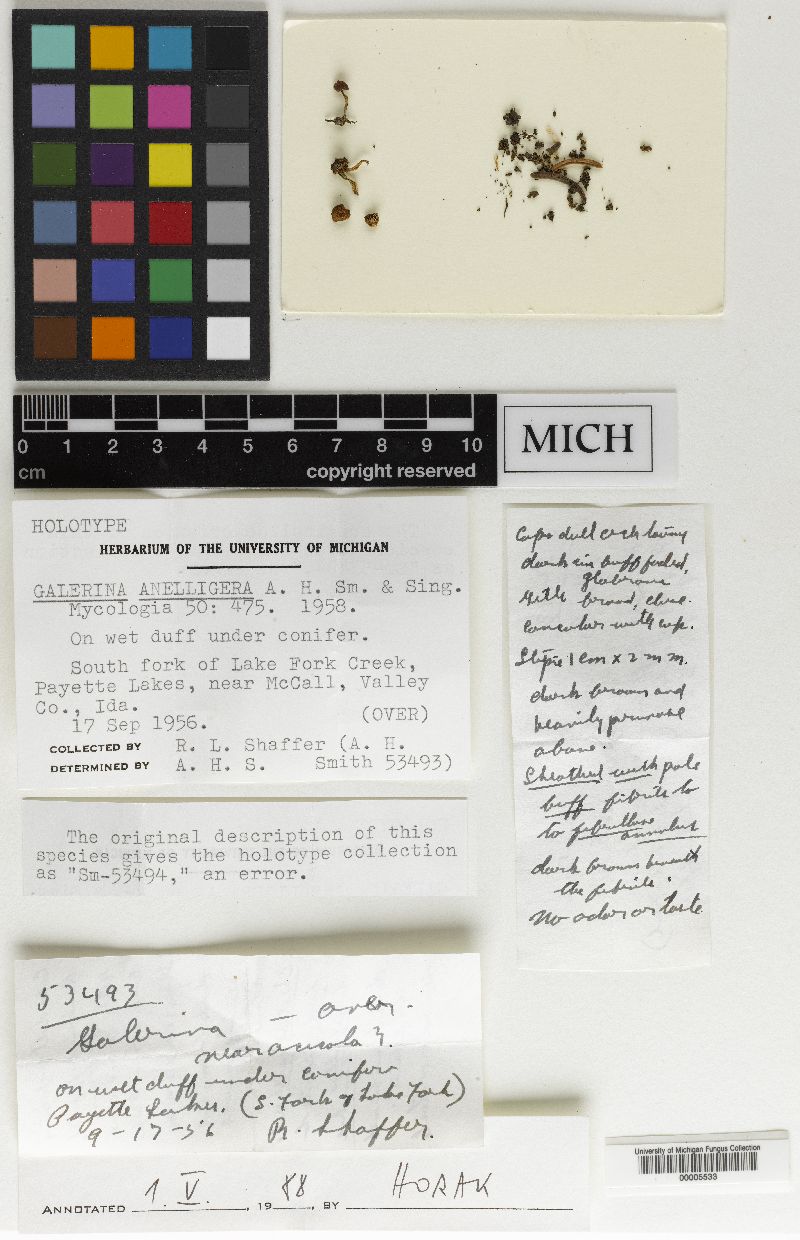 0 1 2 3 4 5 6 7 8 9 10
cm copyright reserved
MICH
HOLOTYPE
HERBARIUM OF THE UNIVERSITY OF MICHIGAN
GALERINA ANELLIGERA A. H. Sm. & Sing.
Mycologia 50: 475. 1958.
On wet duff under conifer.
South fork of Lake Fork Creek,
Payette Lakes, near McCall, Valley
Co., Ida.
17 Sep 1956. (OVER)
COLLECTED BY R. L. Shaffer (A. H.
DETERMINED BY A. H. S. Smith 53493)
The original description of this
species gives the holotype collection
as "Sm-53494," an error.
Caps dull
dark buff faded,
glabrous
Gills broad, close.
concolor with cap.
Stipe 1 cm x 2 mm.
dark brown and
heavily pruinose
above.
Sheathed with pale
buff fibrils to
to fibrillose
annulus
dark brown beneath
the fibrils.
No odor or taste
53493
Galerina
near
on wet duff under conifers
Payette Lakes. (S. Fork of Lake Fork)
9-17-56 R. Shaffer.
ANNOTATED 1. V. , 19 88 , BY HORAK
University of Michigan Fungus Collection
00005533